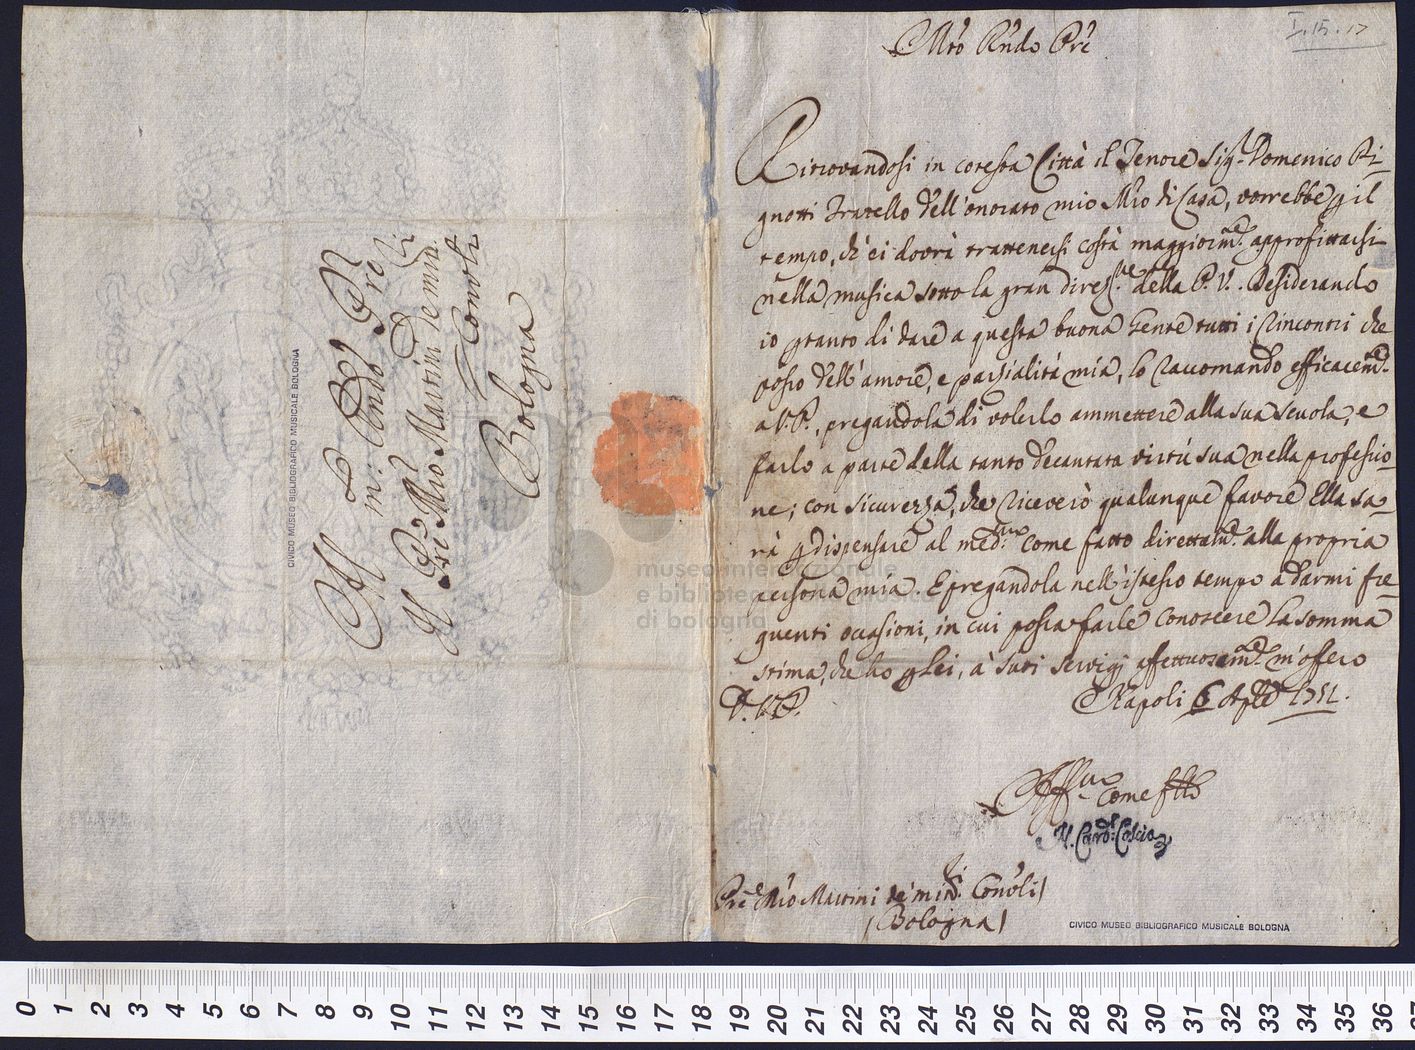 I.15.17
Mto Rndo Pre
Ritrovandosi in cotesta Città il Tenore Sig.r Domenico Pi-
gnotti Fratello dell'onorato mio Mro di Casa, vorrebbe p il
tempo, ch'ei dovrà trattenersi costà maggiorm.te approfittarsi
nella musica sotto la gran direz.ne della P.V. Desiderando
io ptanto di dare a questa buona Gente tutti i rincontri che
posso dell'amore, e parzialità mia, lo raccomando efficacem.te
a V.P., pregandola di volerlo ammettere alla sua scuola, e
farlo a parte della tanto decantata virtú sua nella professio-
ne; con sicurezza, che riceverò qualunque favore Ella sa-
rà p dispensare al med.mo come fatto direttam.te alla propria
persona mia. E pregandola nell'istesso tempo a darmi fre-
quenti occasioni, in cui possa farle conoscere la somma
stima, che ho p Lei, a' suoi servigi affettuosam.te m'offero
D.V.P. Napoli 6 Aple 1751.
Aff.mo come fllo
Il Card.l
Pre Mro Martini de' min.ri Conv.li
(Bologna)
CIVICO MUSEO BIBLIOGRAFICO MUSICALE BOLOGNA
Al m: Rndo Pre
Il Pre Mro Martini de min.ri
Conv.li
Bologna
CIVICO MUSEO BIBLIOGRAFICO MUSICALE BOLOGNA
museo internazionale
e biblioteca della musica
di bologna
0 1 2 3 4 5 6 7 8 9 10 11 12 13 14 15 16 17 18 19 20 21 22 23 24 25 26 27 28 29 30 31 32 33 34 35 36